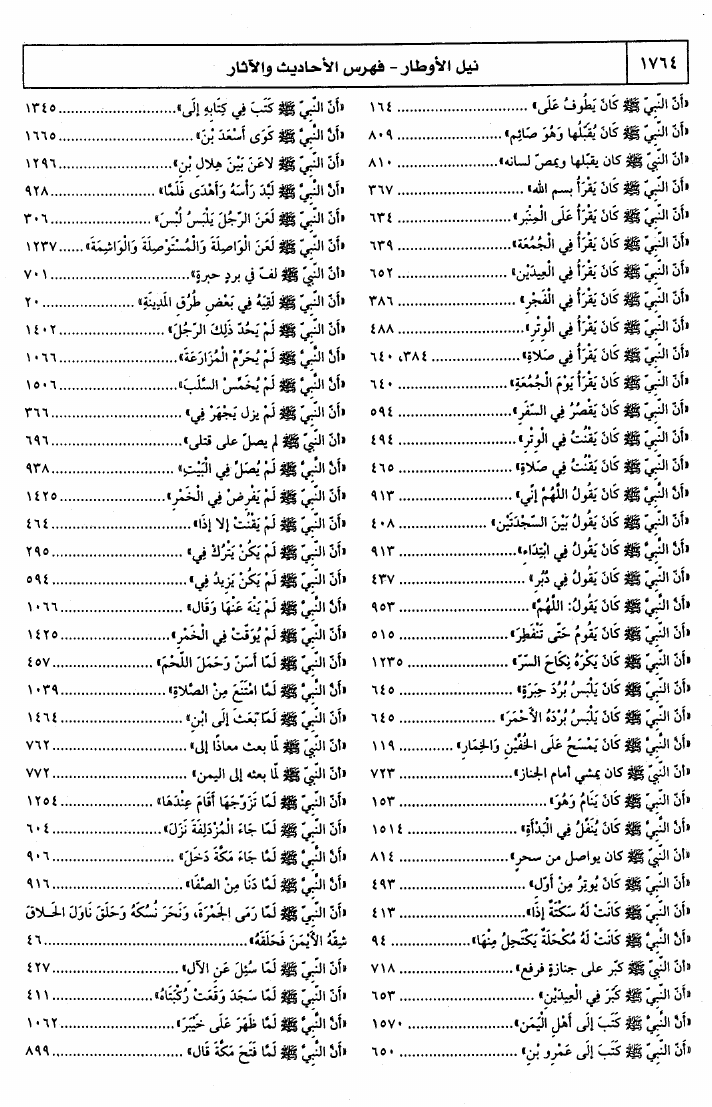 ١٧٦٤
نيل الأوطار - فهرس الأحاديث والآثار
«أَنَّ النَّبِيَّ ﷺ كَانَ يَطُوفُ عَلَى» .............................. ١٦٤
«أَنَّ النَّبِيَّ ﷺ كَانَ يُقَبِّلُها وَهُوَ صَائِم» ....................... ٨٠٩
«أَنَّ النَّبِيَّ ﷺ كان يقبلها ويمصّ لسانه» ....................... ٨١٠
«أَنَّ النَّبِيَّ ﷺ كَانَ يَقْرَأُ بسم الله» ............................ ٣٦٧
«أَنَّ النَّبِيَّ ﷺ كَانَ يَقْرَأُ عَلَى الْمِنْبَرِ» ......................... ٦٣٤
«أَنَّ النَّبِيَّ ﷺ كَانَ يَقْرَأُ فِي الْجُمُعَةِ» ......................... ٦٣٩
«أَنَّ النَّبِيَّ ﷺ كَانَ يَقْرَأُ فِي الْعِيدَيْنِ» ........................ ٦٥٢
«أَنَّ النَّبِيَّ ﷺ كَانَ يَقْرَأُ فِي الْفَجْرِ» .......................... ٣٨٦
«أَنَّ النَّبِيَّ ﷺ كَانَ يَقْرَأُ فِي الْوِتْرِ» .......................... ٤٨٨
«أَنَّ النَّبِيَّ ﷺ كَانَ يَقْرَأُ فِي صَلاةِ» ................... ٣٨٤، ٦٤٠
«أَنَّ النَّبِيَّ ﷺ كَانَ يَقْرَأُ يَوْمَ الْجُمُعَةِ» ....................... ٦٤٠
«أَنَّ النَّبِيَّ ﷺ كَانَ يَقْصُرُ فِي السَّفَرِ» ......................... ٥٩٤
«أَنَّ النَّبِيَّ ﷺ كَانَ يَقْنُتُ فِي الْوِتْرِ» .......................... ٤٩٤
«أَنَّ النَّبِيَّ ﷺ كَانَ يَقْنُتُ فِي صَلاةِ» .......................... ٤٦٥
«أَنَّ النَّبِيَّ ﷺ كَانَ يَقُولُ اللَّهُمَّ إِنِّي» .......................... ٩١٣
«أَنَّ النَّبِيَّ ﷺ كَانَ يَقُولُ بَيْنَ السَّجْدَتَيْنِ» .................... ٤٠٨
«أَنَّ النَّبِيَّ ﷺ كَانَ يَقُولُ فِي ابْتِدَاءِ» ........................ ٩١٣
«أَنَّ النَّبِيَّ ﷺ كَانَ يَقُولُ فِي دُبُرِ» ............................ ٤٣٧
«أَنَّ النَّبِيَّ ﷺ كَانَ يَقُولُ: اللَّهُمَّ» ............................ ٩٥٣
«أَنَّ النَّبِيَّ ﷺ كَانَ يَقُومُ حَتَّى تَتَفَطِرَ» ........................ ٥١٥
«أَنَّ النَّبِيَّ ﷺ كَانَ يَكْرَهُ نِكَاحَ السِّرِّ» ...................... ١٢٣٥
«أَنَّ النَّبِيَّ ﷺ كَانَ يَلْبَسُ بُرْدَ حِبَرَةٍ» ........................ ٦٤٥
«أَنَّ النَّبِيَّ ﷺ كَانَ يَلْبَسُ بُرْدَهُ الأَحْمَرَ» ..................... ٦٤٥
«أَنَّ النَّبِيَّ ﷺ كَانَ يَمْسَحُ عَلَى الخُفَّيْنِ وَالخِمَارِ» ............ ١١٩
«أَنَّ النَّبِيَّ ﷺ كان يمشي أمام الجناز» ......................... ٧٢٣
«أَنَّ النَّبِيَّ ﷺ كَانَ يَنَامُ وَهُوَ» ................................ ١٥٣
«أَنَّ النَّبِيَّ ﷺ كَانَ يُنَفِّلُ فِي الْبَدْأَةِ» ....................... ١٥١٤
«أَنَّ النَّبِيَّ ﷺ كان يواصل من سحرٍ» ......................... ٨١٤
«أَنَّ النَّبِيَّ ﷺ كَانَ يُوتِرُ مِنْ أَوَّلِ» ........................... ٤٩٣
«أَنَّ النَّبِيَّ ﷺ كَانَتْ لَهُ سَكْتَةٌ إِذَا» ......................... ٤١٣
«أَنَّ النَّبِيَّ ﷺ كَانَتْ لَهُ مُكْحَلَةٌ يَكْتَحِلُ مِنْهَا» ............... ٩٤
«أَنَّ النَّبِيَّ ﷺ كبّر على جنازةٍ فرفع» ......................... ٧١٨
«أَنَّ النَّبِيَّ ﷺ كَبَّرَ فِي الْعِيدَيْنِ» ............................ ٦٥٣
«أَنَّ النَّبِيَّ ﷺ كَتَبَ إِلَى أَهْلِ الْيَمَنِ» ..................... ١٥٧٠
«أَنَّ النَّبِيَّ ﷺ كَتَبَ إِلَى عَمْرِو بْنِ» ......................... ٦٥٠
«أَنَّ النَّبِيَّ ﷺ كَتَبَ فِي كِتَابِهِ إِلَى» ......................... ١٣٤٥
«أَنَّ النَّبِيَّ ﷺ كَوَى أَسْعَدَ بْنَ» ............................ ١٦٦٥
«أَنَّ النَّبِيَّ ﷺ لاعَنَ بَيْنَ هِلالِ بْنِ» ........................ ١٢٩٦
«أَنَّ النَّبِيَّ ﷺ لَبَّدَ رَأْسَهُ وَأَهْدَى فَلَمَّا» ...................... ٩٢٨
«أَنَّ النَّبِيَّ ﷺ لَعَنَ الرَّجُلَ يَلْبَسُ لُبْسَ» ....................... ٣٠٦
«أَنَّ النَّبِيَّ ﷺ لَعَنَ الْوَاصِلَةَ وَالْمُسْتَوْصِلَةَ وَالْوَاشِمَةَ» ...... ١٢٣٧
«أَنَّ النَّبِيَّ ﷺ لفّ في بردٍ حبرةٍ» ............................ ٧٠١
«أَنَّ النَّبِيَّ ﷺ لَقِيَهُ فِي بَعْضِ طُرُقِ المَدِينَةِ» .................... ٢٠
«أَنَّ النَّبِيَّ ﷺ لَمْ يَحُدَّ ذَلِكَ الرَّجُلَ» ......................... ١٤٠٢
«أَنَّ النَّبِيَّ ﷺ لَمْ يُحَرِّمْ الْمُزَارَعَةَ» ......................... ١٠٦٦
«أَنَّ النَّبِيَّ ﷺ لَمْ يُخَمِّسْ السَّلَبَ» ......................... ١٥٠٦
«أَنَّ النَّبِيَّ ﷺ لَمْ يزل يَجْهَرُ فِي» ........................... ٣٦٦
«أَنَّ النَّبِيَّ ﷺ لم يصلّ على قتلى» ........................... ٦٩٦
«أَنَّ النَّبِيَّ ﷺ لَمْ يُصَلِّ فِي الْبَيْتِ» .......................... ٩٣٨
«أَنَّ النَّبِيَّ ﷺ لَمْ يَفْرِضْ فِي الْخَمْرِ» ....................... ١٤٢٥
«أَنَّ النَّبِيَّ ﷺ لَمْ يَقْنُتْ إلا إذَا» ............................ ٤٦٤
«أَنَّ النَّبِيَّ ﷺ لَمْ يَكُنْ يَتْرُكُ فِي» ........................... ٢٩٥
«أَنَّ النَّبِيَّ ﷺ لَمْ يَكُنْ يَزِيدُ فِي» ............................ ٥٩٤
«أَنَّ النَّبِيَّ ﷺ لَمْ يَنْهَ عَنْهَا وَقَال» ......................... ١٠٦٦
«أَنَّ النَّبِيَّ ﷺ لَمْ يُوَقِّتْ فِي الْخَمْرِ» ....................... ١٤٢٥
«أَنَّ النَّبِيَّ ﷺ لَمَّا أَسَنَّ وَحَمَلَ اللَّحْمَ» ...................... ٤٥٧
«أَنَّ النَّبِيَّ ﷺ لَمَّا امْتَنَعَ مِنْ الصَّلاةِ» ....................... ١٠٣٩
«أَنَّ النَّبِيَّ ﷺ لَمَّا بَعَثَ إِلَى ابْنِ» .......................... ١٤٦٤
«أَنَّ النَّبِيَّ ﷺ لمّا بعث معاذًا إلى» ............................ ٧٦٢
«أَنَّ النَّبِيَّ ﷺ لمّا بعثه إلى اليمن» ........................... ٧٧٢
«أَنَّ النَّبِيَّ ﷺ لَمَّا تَزَوَّجَهَا أَقَامَ عِنْدَهَا» ................... ١٢٥٤
«أَنَّ النَّبِيَّ ﷺ لَمَّا جَاءَ الْمُزْدَلِفَةَ نَزَلَ» ...................... ٦٠٤
«أَنَّ النَّبِيَّ ﷺ لَمَّا جَاءَ مَكَّةَ دَخَلَ» ......................... ٩٠٦
«أَنَّ النَّبِيَّ ﷺ لَمَّا دَنَا مِنْ الصَّفَا» .......................... ٩١٦
«أَنَّ النَّبِيَّ ﷺ لَمَّا رَمَى الْجَمْرَةَ، وَنَحَرَ نُسُكَهُ وَحَلَقَ نَاوَلَ الحَلاقَ
شِقَّهُ الأَيْمَنَ فَحَلَقَهُ» .......................................... ٤٦
«أَنَّ النَّبِيَّ ﷺ لَمَّا سُئِلَ عَنِ الآلِ» ........................... ٤٢٧
«أَنَّ النَّبِيَّ ﷺ لَمَّا سَجَدَ وَقَعَتْ رُكْبَتَاهُ» .................... ٤١١
«أَنَّ النَّبِيَّ ﷺ لَمَّا ظَهَرَ عَلَى خَيْبَرَ» ........................ ١٠٦٢
«أَنَّ النَّبِيَّ ﷺ لَمَّا فَتَحَ مَكَّةَ قَال» ........................... ٨٩٩